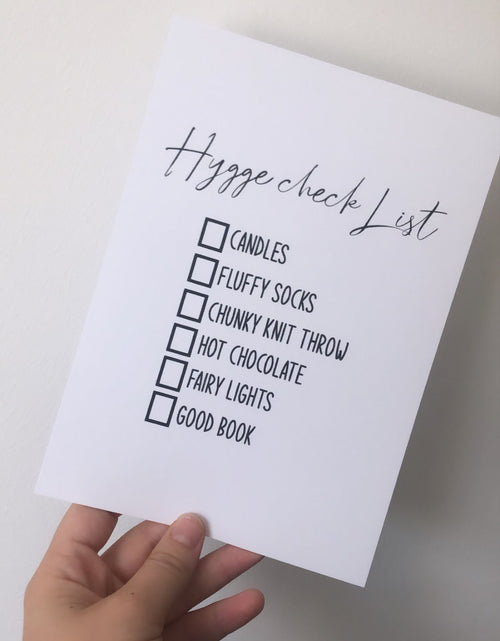 Hygge check List
CANDLES
FLUFFY SOCKS
CHUNKY KNIT THROW
HOT CHOCOLATE
FAIRY LIGHTS
GOOD BOOK